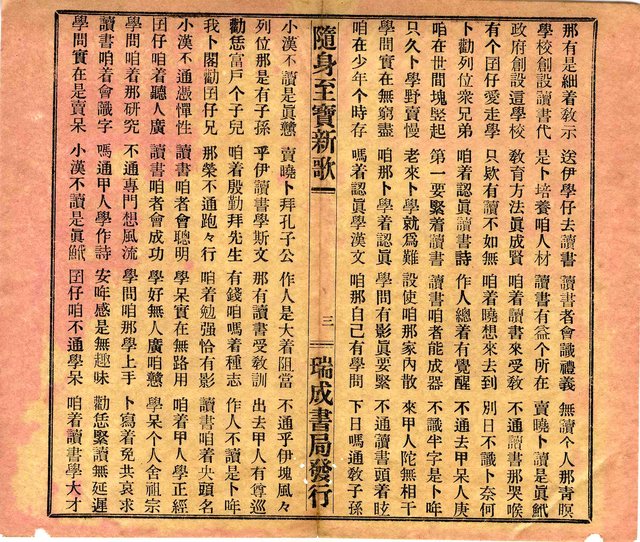 那有是細着敎示 送伊學仔去讀書 讀書者會識禮義 無讀个人那靑暝
學校創設讀書代 是卜培養咱人材 讀書有益个所在 賣曉卜讀是眞鮘
政府創設這學校 敎育方法眞成賢 咱着讀書來受敎 不通讀書那哭喉
有个囝仔愛走學 只欵有讀不如無 咱着曉想來去到 別日不識卜奈何
卜勸列位衆兄弟 咱着認眞讀書詩 作人總着有覺醒 不通去甲呆人庚
咱在世間塊竪起 第一要緊着讀書 讀書咱者能成器 不識半字是卜哖
只久卜學野賣慢 老來卜學就爲難 設使咱那家內散 來甲人陀無相干
學問實在無窮盡 咱那卜學着認眞 學問有影眞要緊 不通讀書頭着眩
咱在少年个時存 嗎着認眞學漢文 咱那自己有學問 下日嗎通敎子孫
隨身至寶新歌 三 瑞成書局發行
小漢不讀是眞戇 賣曉卜拜孔子公 作人是大着阻當 不通乎伊塊風々
列位那是有子孫 乎伊讀書學斯文 那有讀書受敎訓 出去甲人有尊巡
勸恁富戶个子兒 咱着殷勤拜先生 有錢咱嗎着種志 作人不讀是卜哖
我卜閣勸囝仔兄 那榮不通跑々行 咱着勉强恰有影 讀書咱着央頭名
小漢不通憑憚性 讀書咱者會聰明 學呆實在無路用 咱着甲人學正經
囝仔咱着聽人廣 讀書咱者會成功 學好無人廣咱戇 學呆个人舍祖宗
學問咱着那研究 不通專門想風流 學問咱那學上手 卜寫着免共哀求
讀書咱着會識字 嗎通甲人學作詩 安哖感是無趣味 勸恁緊讀無延遲
學問實在是賣呆 小漢不讀是眞鮘 囝仔咱不通學呆 咱着讀書學大才